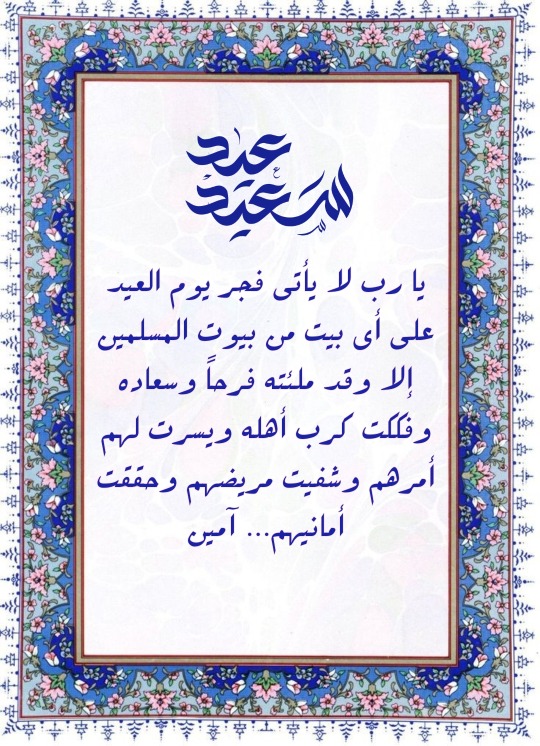 عيد
سعيد
يا رب لا يأتى فجر يوم العيد
على أى بيت من بيوت المسلمين
إلا وقد ملئته فرحاً وسعاده
وفككت كرب أهله ويسرت لهم
أمرهم وشفيت مريضهم وحققت
أمانيهم... آمين